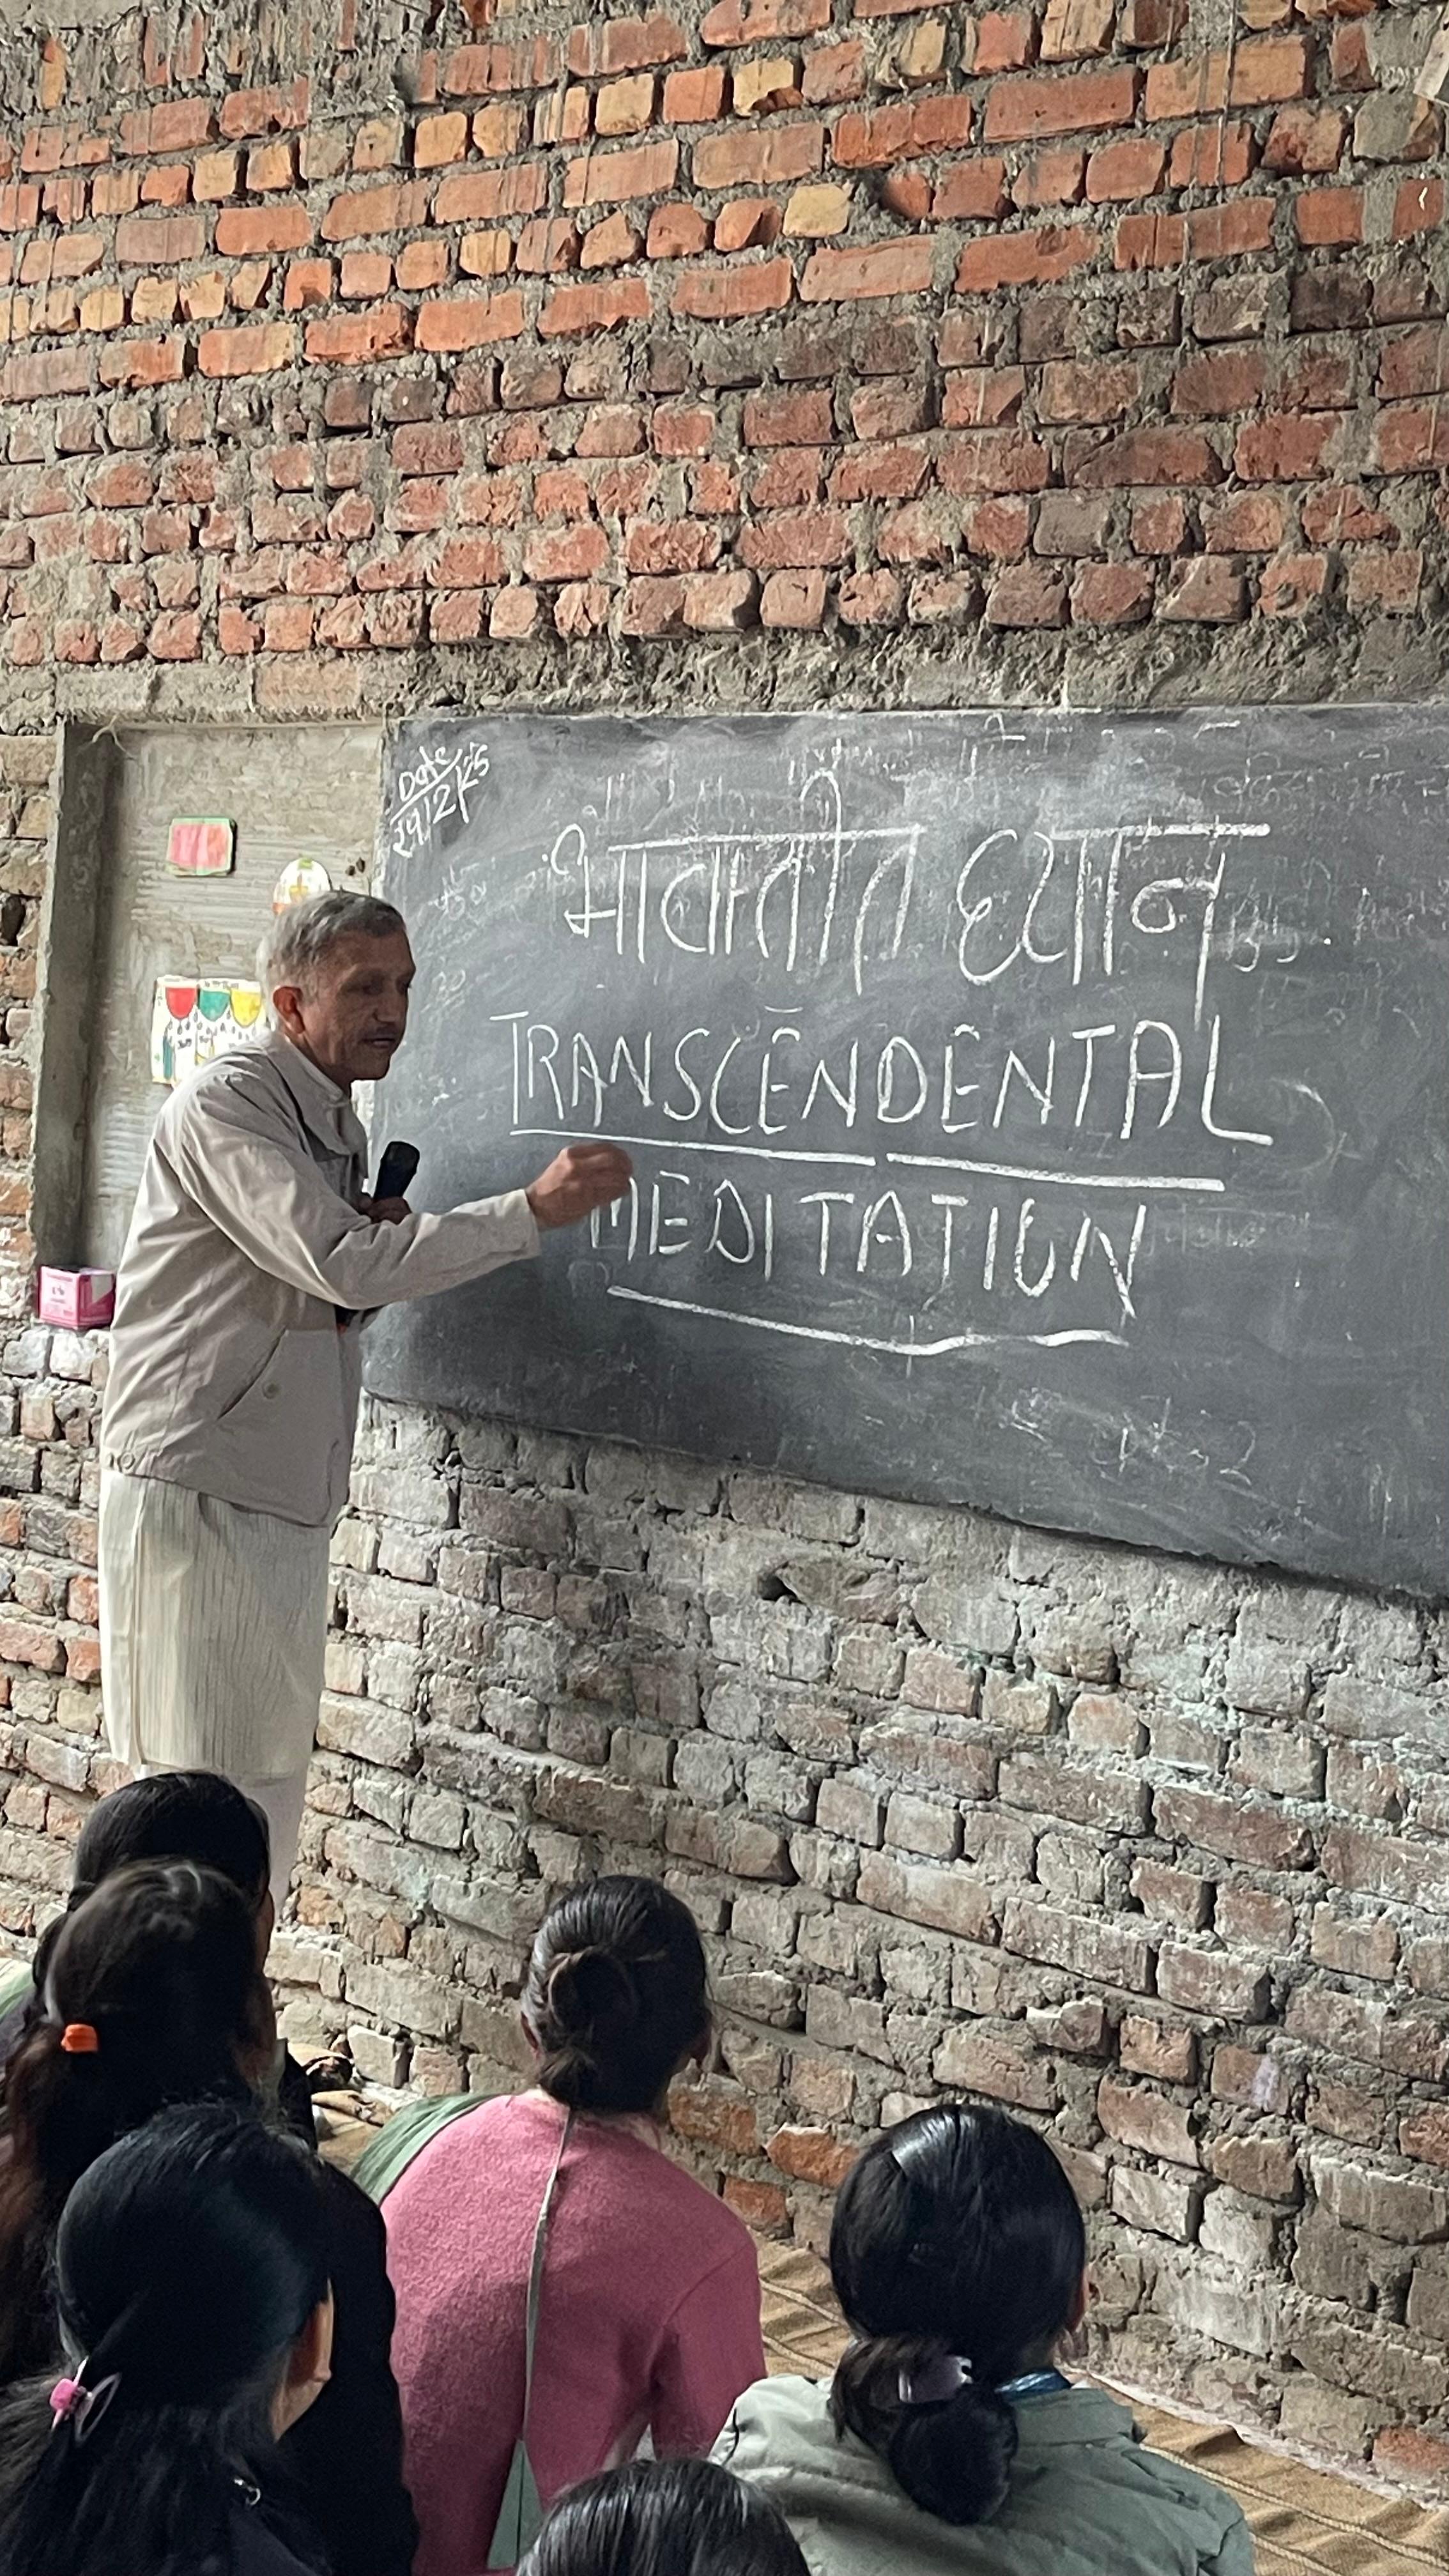 Date
भावातीत ध्यान
TRANSCENDENTAL
MEDITATION